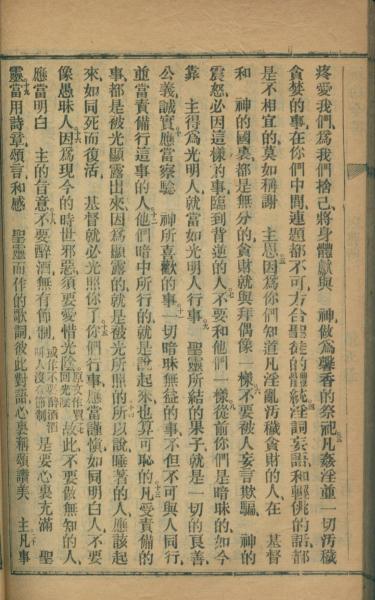 疼愛我們、爲我們捨己、將身體獻與　神、做爲馨香的祭祀凡姦淫並一切汚穢
貪婪的事、在你們中間連題都不可方合聖徒的體統淫詞妄語和輕佻的話都
是不相宜的莫如稱謝　主恩因爲你們知道凡淫亂汚穢貪財的人在　基督
和　神的國裏、都是無分的貪財就與拜偶像一樣不要被人妄言欺騙、　神的
震怒、必因這樣的事、臨到背逆的人不要和他們一樣從前你們是暗昧的、如今
靠　主得爲光明人、就當如光明人行事　聖靈所結的果子、就是一切的良善
公義誠實應當察驗　神所喜歡的事一切暗昧無益的事、不但不可與人同行、
並當責備行這事的人他們暗中所行的、就是說起來也算可恥的凡受責備的
事、都是被光顯露出來因爲顯露的就是被光所照的所以說、睡著的人、應該起
來、如同死而復活、　基督就必光照你了你們行事、應當謹愼、如同明白人、不要
像愚昧人因爲現今的時世邪惡、須要愛惜光陰原文作買回光陰故此不要做無知的人、
應當明白　主的旨意不要醉酒、無有節制、或作不要醉酒酒叫人沒節制是要心裏充滿　聖
靈當用詩章、頌言、和感　聖靈而作的歌詞、彼此對語心裏稱頌讚美　主凡事